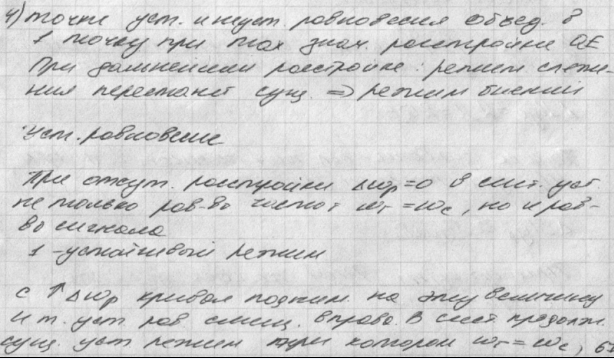 4) точки уст. и неуст. равновесия объед. в
1 точку при max знач. расстройке ОЕ
При дальнейшем расстройке: режим слеже-
ния перестаёт сущ. => режим биений
Уст. равновесие
При отсут. расстройки Δωр=0 в сист. уст.
не только рав-во частот ωг=ωс, но и рав-
во сигнала
1 - устойчивый режим
с ↑Δωр кривая подним. на эту величину
и т. уст. рав. смещ. вправо. В сист. продолж.
сущ. уст. режим при котором ωг=ωс,